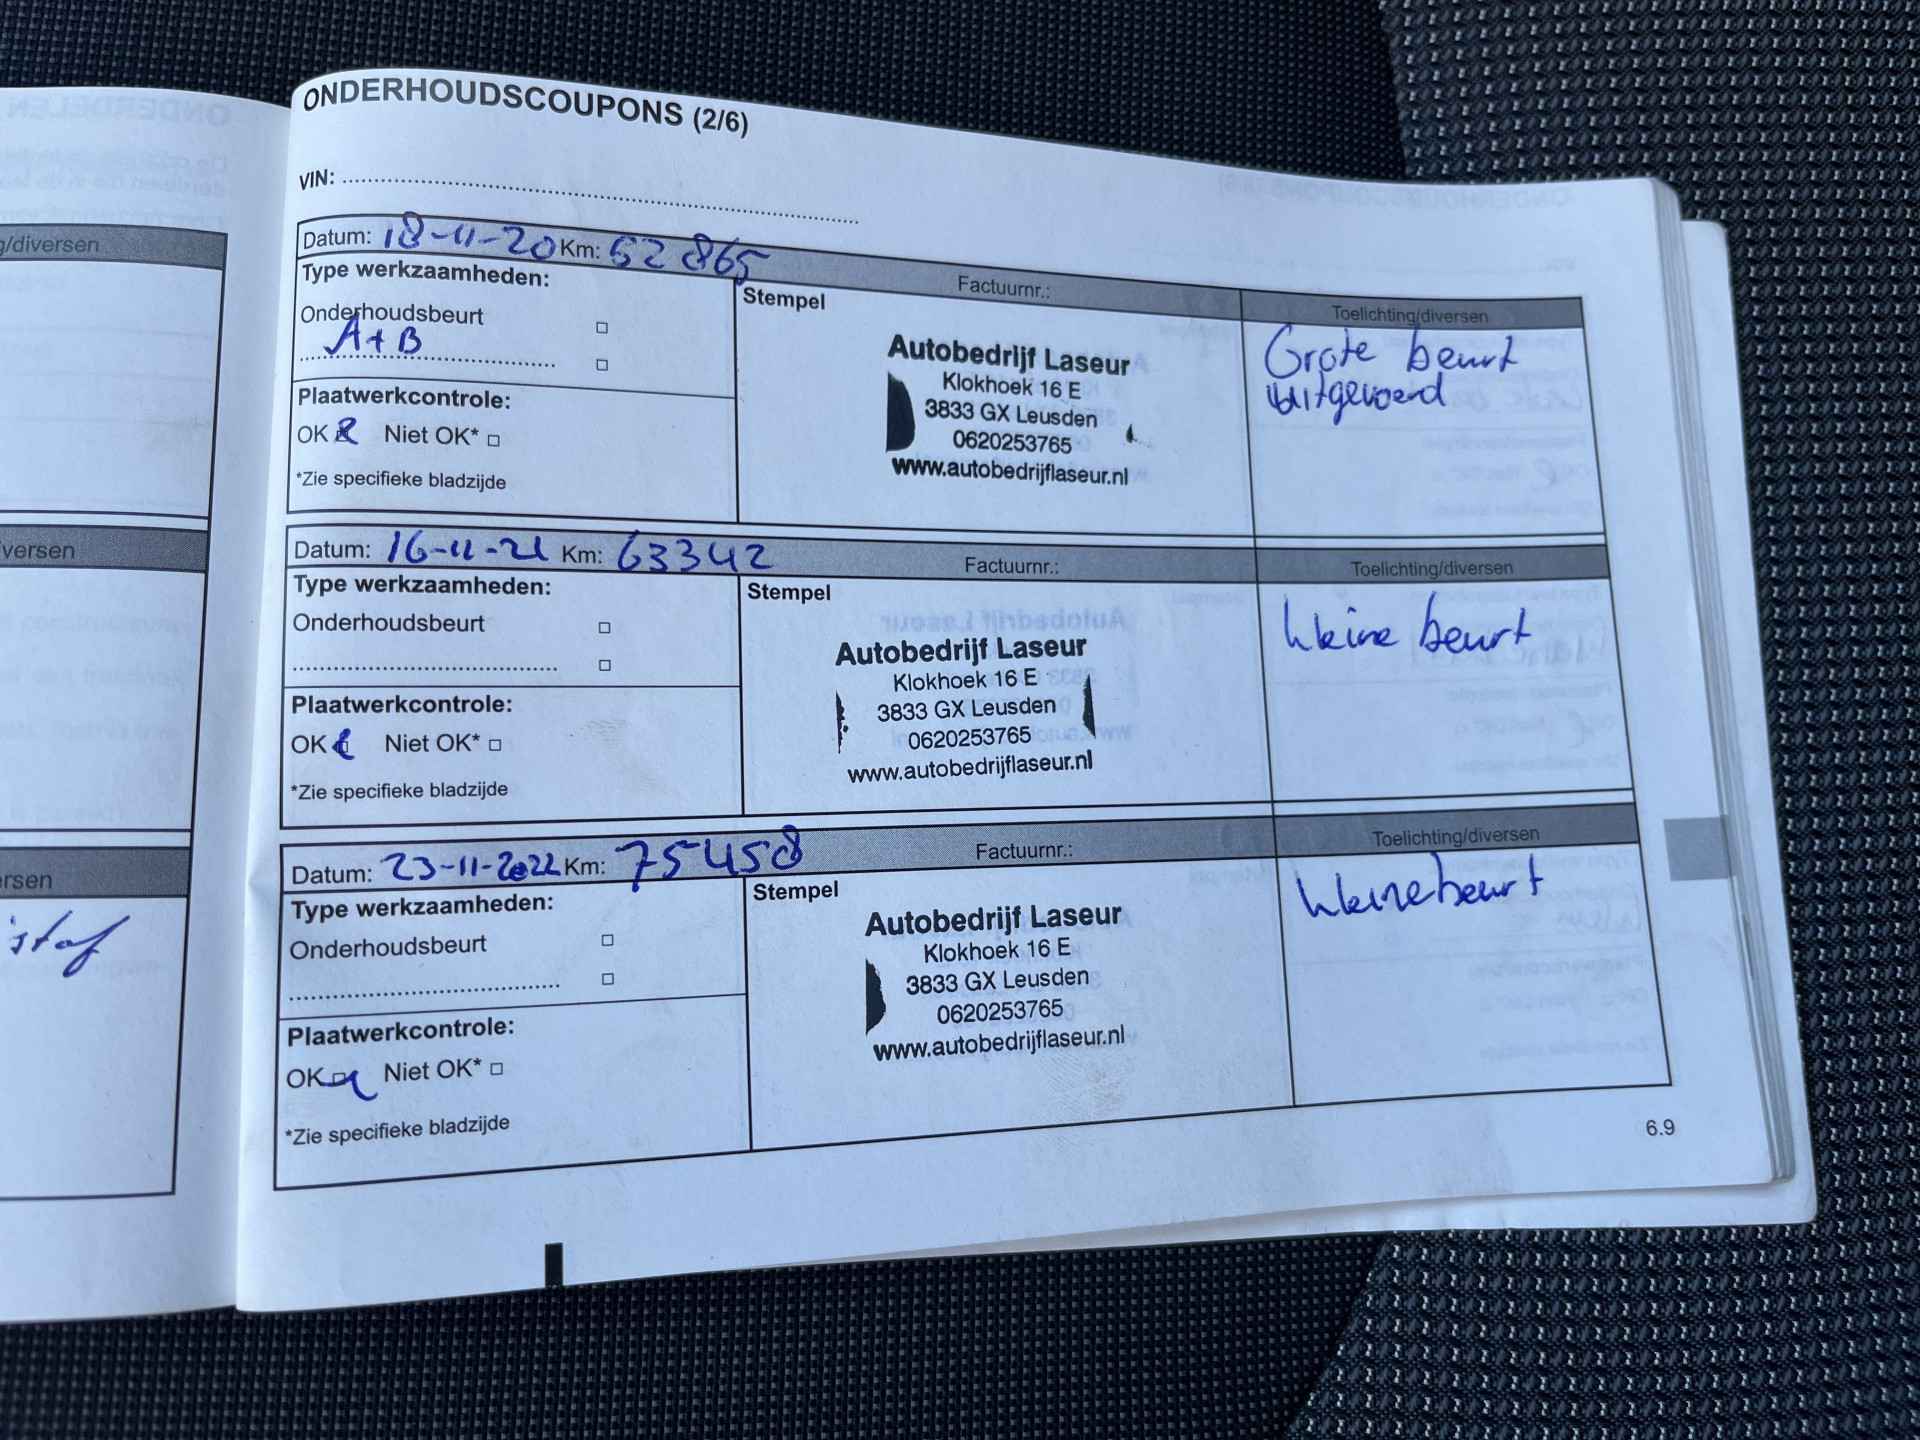 g/diversen
versen
ersen
istaf
ONDERHOUDSCOUPONS (2/6)
VIN:
Datum: 18-11-20 Km: 52 865
Factuurnr.:
Toelichting/diversen
Type werkzaamheden:
Onderhoudsbeurt
A+B
Plaatwerkcontrole:
OK Niet OK*
*Zie specifieke bladzijde
Stempel
Autobedrijf Laseur
Klokhoek 16 E
3833 GX Leusden
0620253765
www.autobedrijflaseur.nl
Grote beurt
uitgevoerd
Datum: 16-11-21 Km: 63342
Factuurnr.:
Toelichting/diversen
Type werkzaamheden:
Onderhoudsbeurt
Plaatwerkcontrole:
OK Niet OK*
*Zie specifieke bladzijde
Stempel
Autobedrijf Laseur
Klokhoek 16 E
3833 GX Leusden
0620253765
www.autobedrijflaseur.nl
kleine beurt
Datum: 23-11-2022 Km: 75458
Factuurnr.:
Toelichting/diversen
Type werkzaamheden:
Onderhoudsbeurt
Plaatwerkcontrole:
OK Niet OK*
*Zie specifieke bladzijde
Stempel
Autobedrijf Laseur
Klokhoek 16 E
3833 GX Leusden
0620253765
www.autobedrijflaseur.nl
kleine beurt
6.9